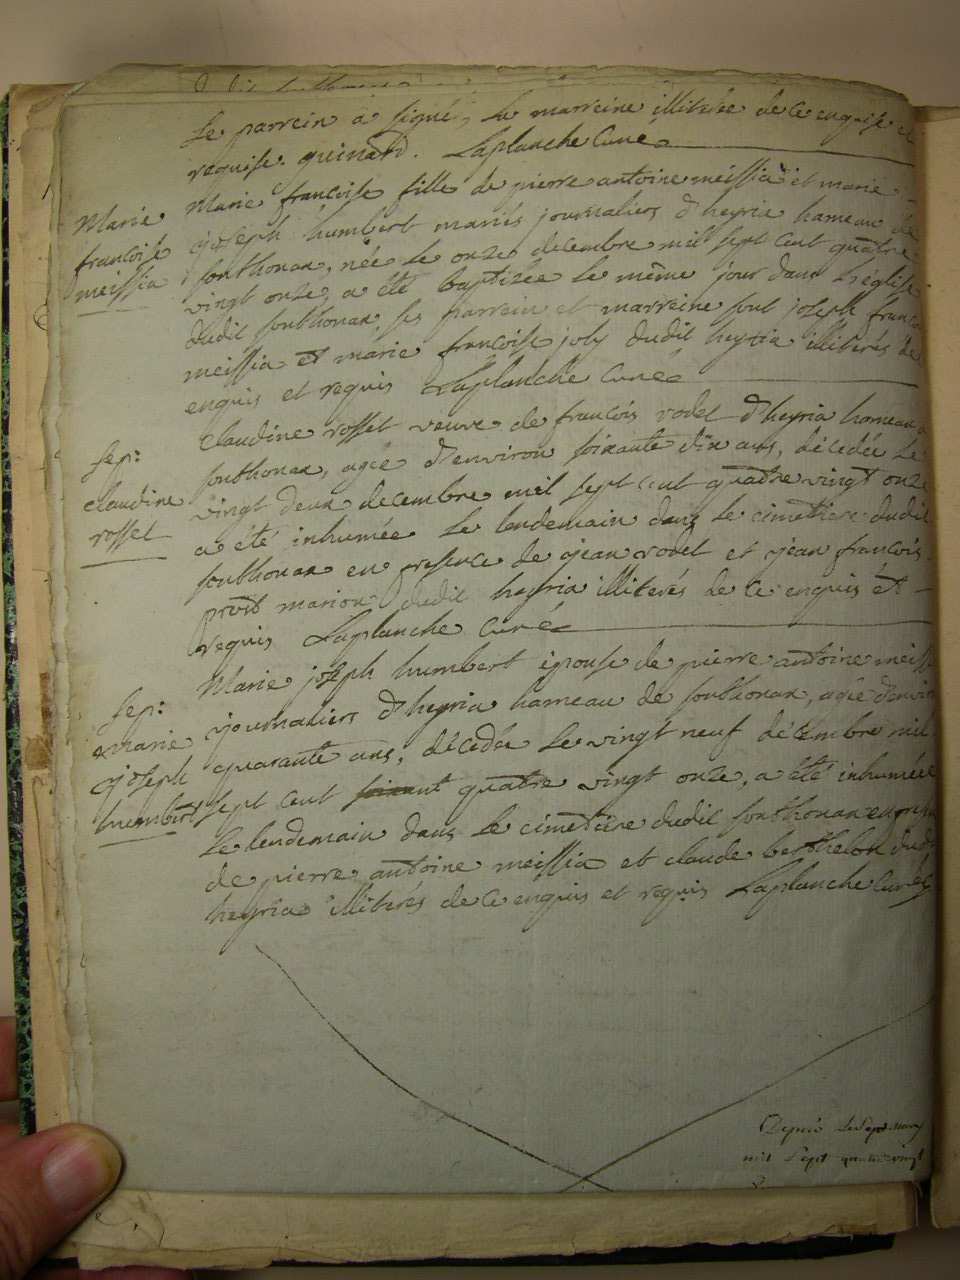 Le parrein a signé, La marreine illiterée de ce enquise et
requise. guinard. Laplanche Curé
Marie
françoise
meissia
Marie françoise fille de pierre antoine meissia et marie
joseph humbert mariés journaliers d'heyria hameau de
fonthonax, née le onze decembre mil sept cent quatre
vingt onze, a été baptisée le même jour dans L'église
dudit fonthonax, ses parrein et marreine sont joseph françois
meissia et marie françoise joly dudit heyria illiterés de
enquis et requis Laplanche Curé
sep:
claudine
rosset
Claudine rosset veuve de françois rodet d'heyria hameau
fonthonax, agée d'environ soixante dix ans, décedée le
vingt deux decembre mil sept cent quatre vingt onze
a été inhumée Le lendemain dans Le cimetiere dudit
fonthonax en presence de jean rodet et jean françois
marion dudit heyria illiterés de ce enquis et
requis Laplanche curé
sep:
marie
joseph
humbert
Marie joseph humbert épouse de pierre antoine meissia
journaliers d'heyria hameau de fonthonax, agée d'environ
quarante ans, décedée Le vingt neuf décembre mil
sept cent quatre vingt onze, a été inhumée
Le lendemain dans Le cimetière dudit fonthonax en
de pierre antoine meissia et claude berthelon dudit
heyria illiterés de ce enquis et requis Laplanche Curé
mil sept quatre vingt